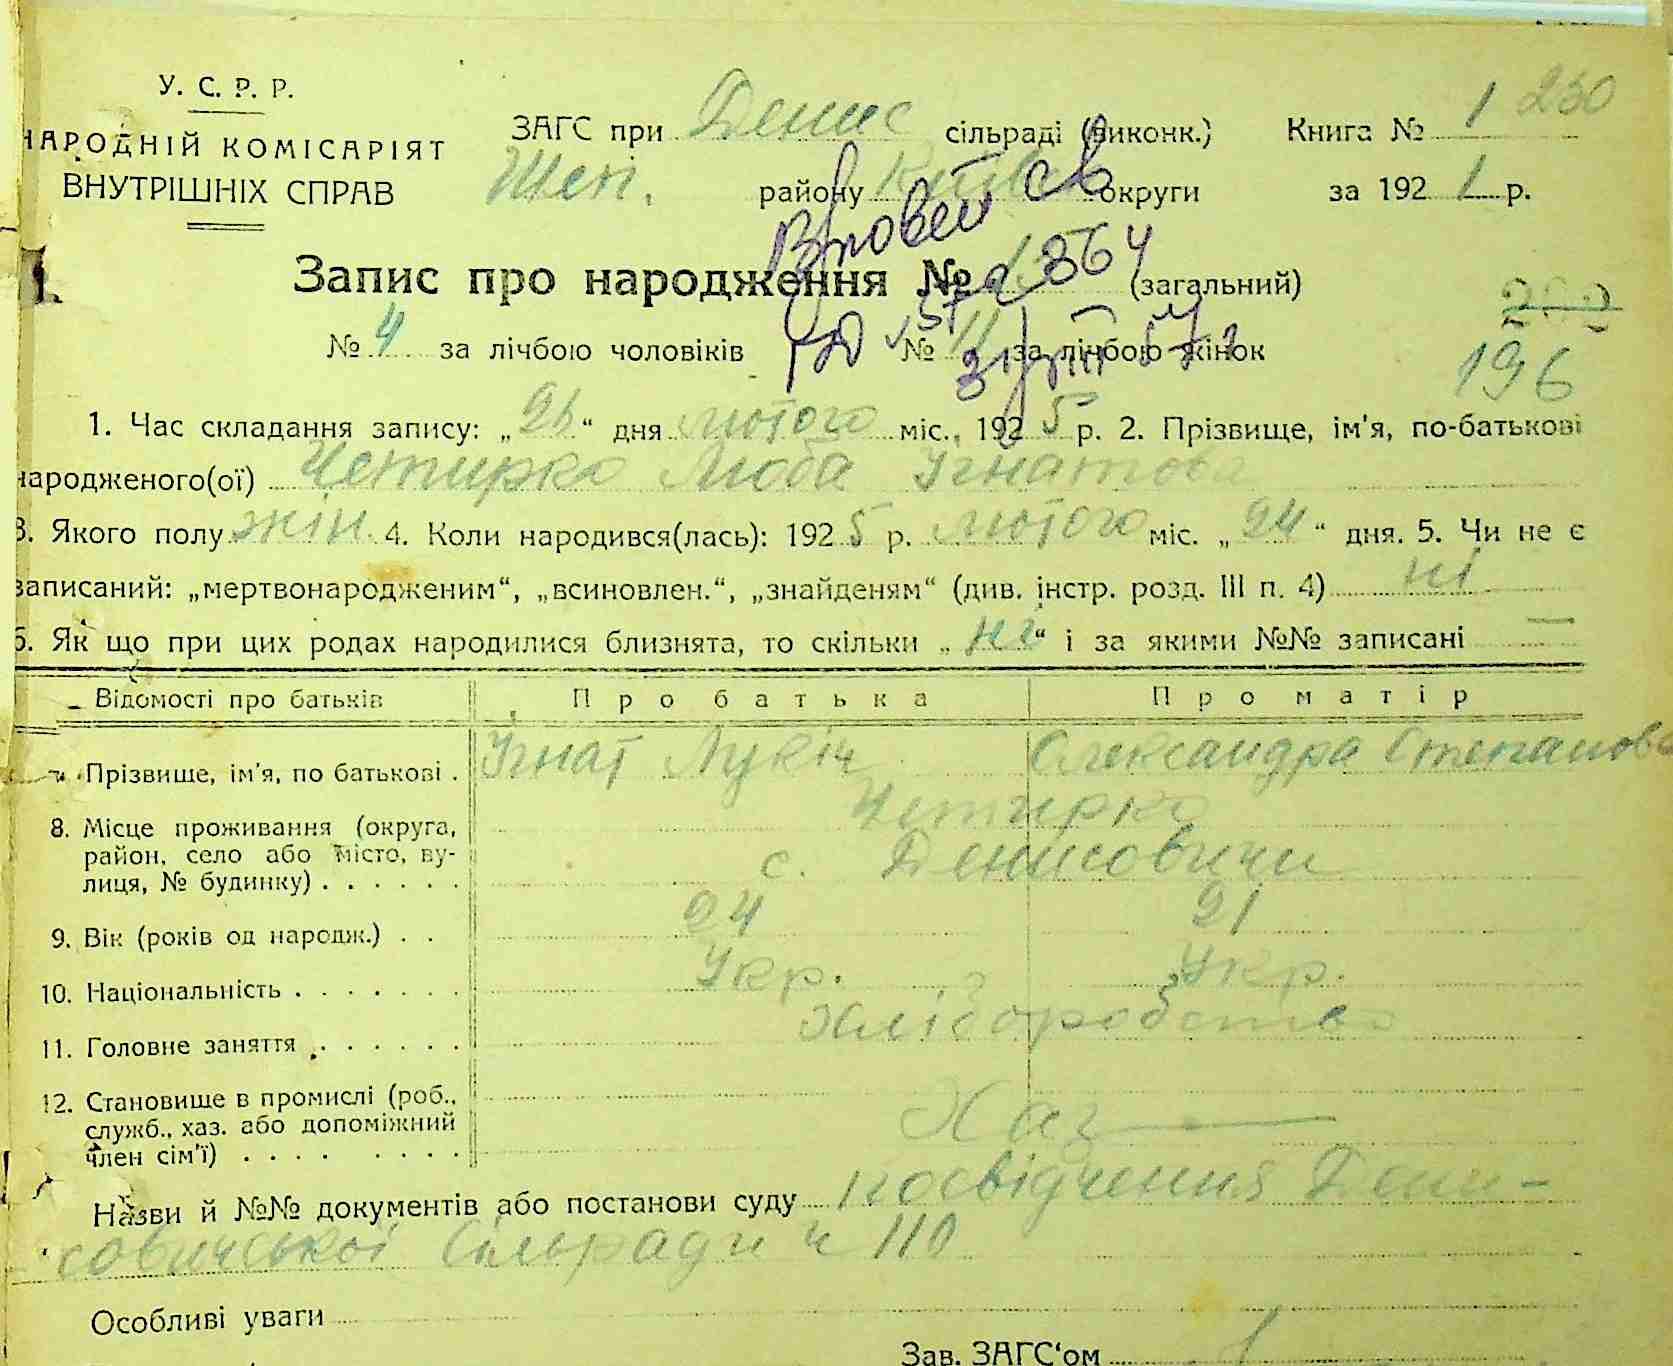 У. С. Р. Р.
НАРОДНІЙ КОМІСАРІЯТ
ВНУТРІШНІХ СПРАВ
ЗАГС при Денис сільраді (виконк.) Книга № 1 230
Шеп. району округи за 1921 р.
Запис про народження № 1364 (загальний)
202
№ 4 за лічбою чоловіків № 11 за лічбою жінок
196
1. Час складання запису: „26“ дня лютого міс., 1925 р. 2. Прізвище, ім'я, по-батькові
народженого(ої) Четирко Люба Ігнатова
3. Якого полу жін. 4. Коли народився(лась): 1925 р. лютого міс. „24“ дня. 5. Чи не є
записаний: „мертвонародженим“, „всиновлен.“, „знайденям“ (див. інстр. розд. III п. 4) ні
6. Як що при цих родах народилися близнята, то скільки „ні“ і за якими №№ записані —
Відомості про батьків Про батька Про матір
Прізвище, ім'я, по батькові . Ігнат Лукіч Олександра Степанова
Четирко
8. Місце проживання (округа,
район, село або місто, ву-
лиця, № будинку) . . . . . . с. Денисовичи
9. Вік (років од народж.) . . 24 21
10. Національність . . . . . . . Укр. Укр.
11. Головне заняття . . . . . . Хліборобство
12. Становище в промислі (роб.,
служб., хаз. або допоміжний
член сім'ї) . . . . . . . . Хаз —
Назви й №№ документів або постанови суду посвідчення Дени-
совичської сільради ч 110
Особливі уваги
Зав. ЗАГС'ом